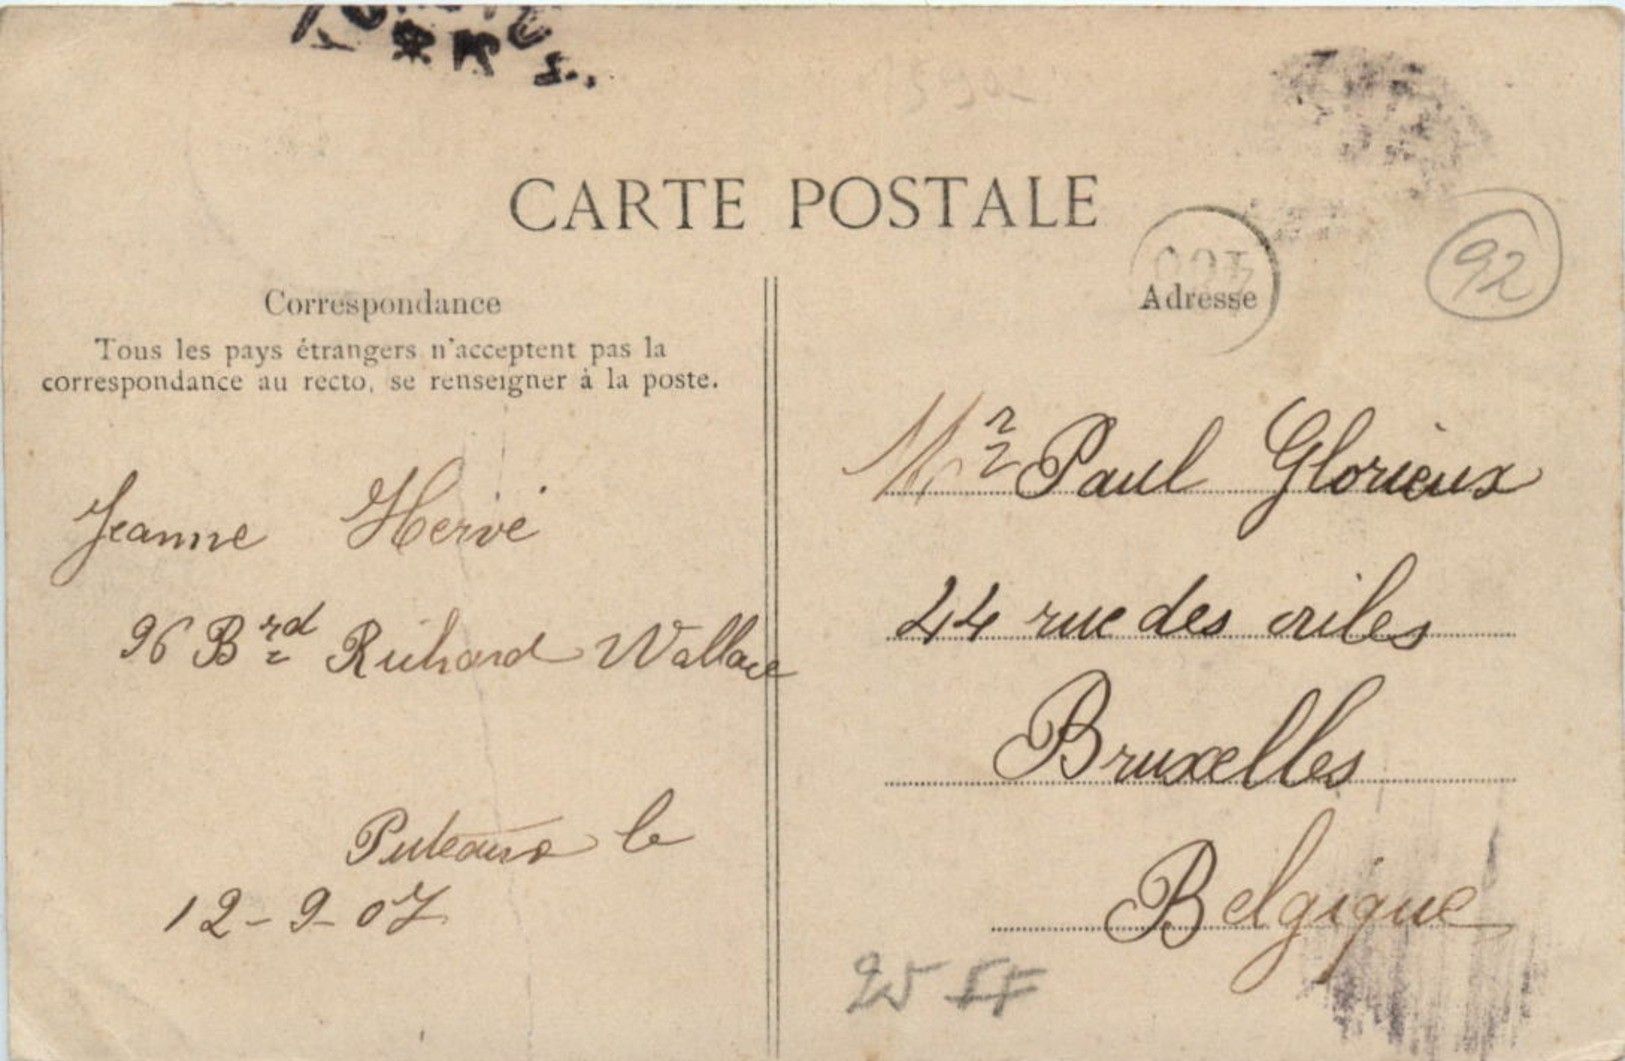 CARTE POSTALE
Correspondance
Tous les pays étrangers n'acceptent pas la
correspondance au recto, se renseigner à la poste.
Jeanne Hervé
96 Brd Richard Wallace
Puteaux le
12-9-07
92
Adresse
Mr Paul Glorieux
44 rue des
Bruxelles
Belgique
25 FF